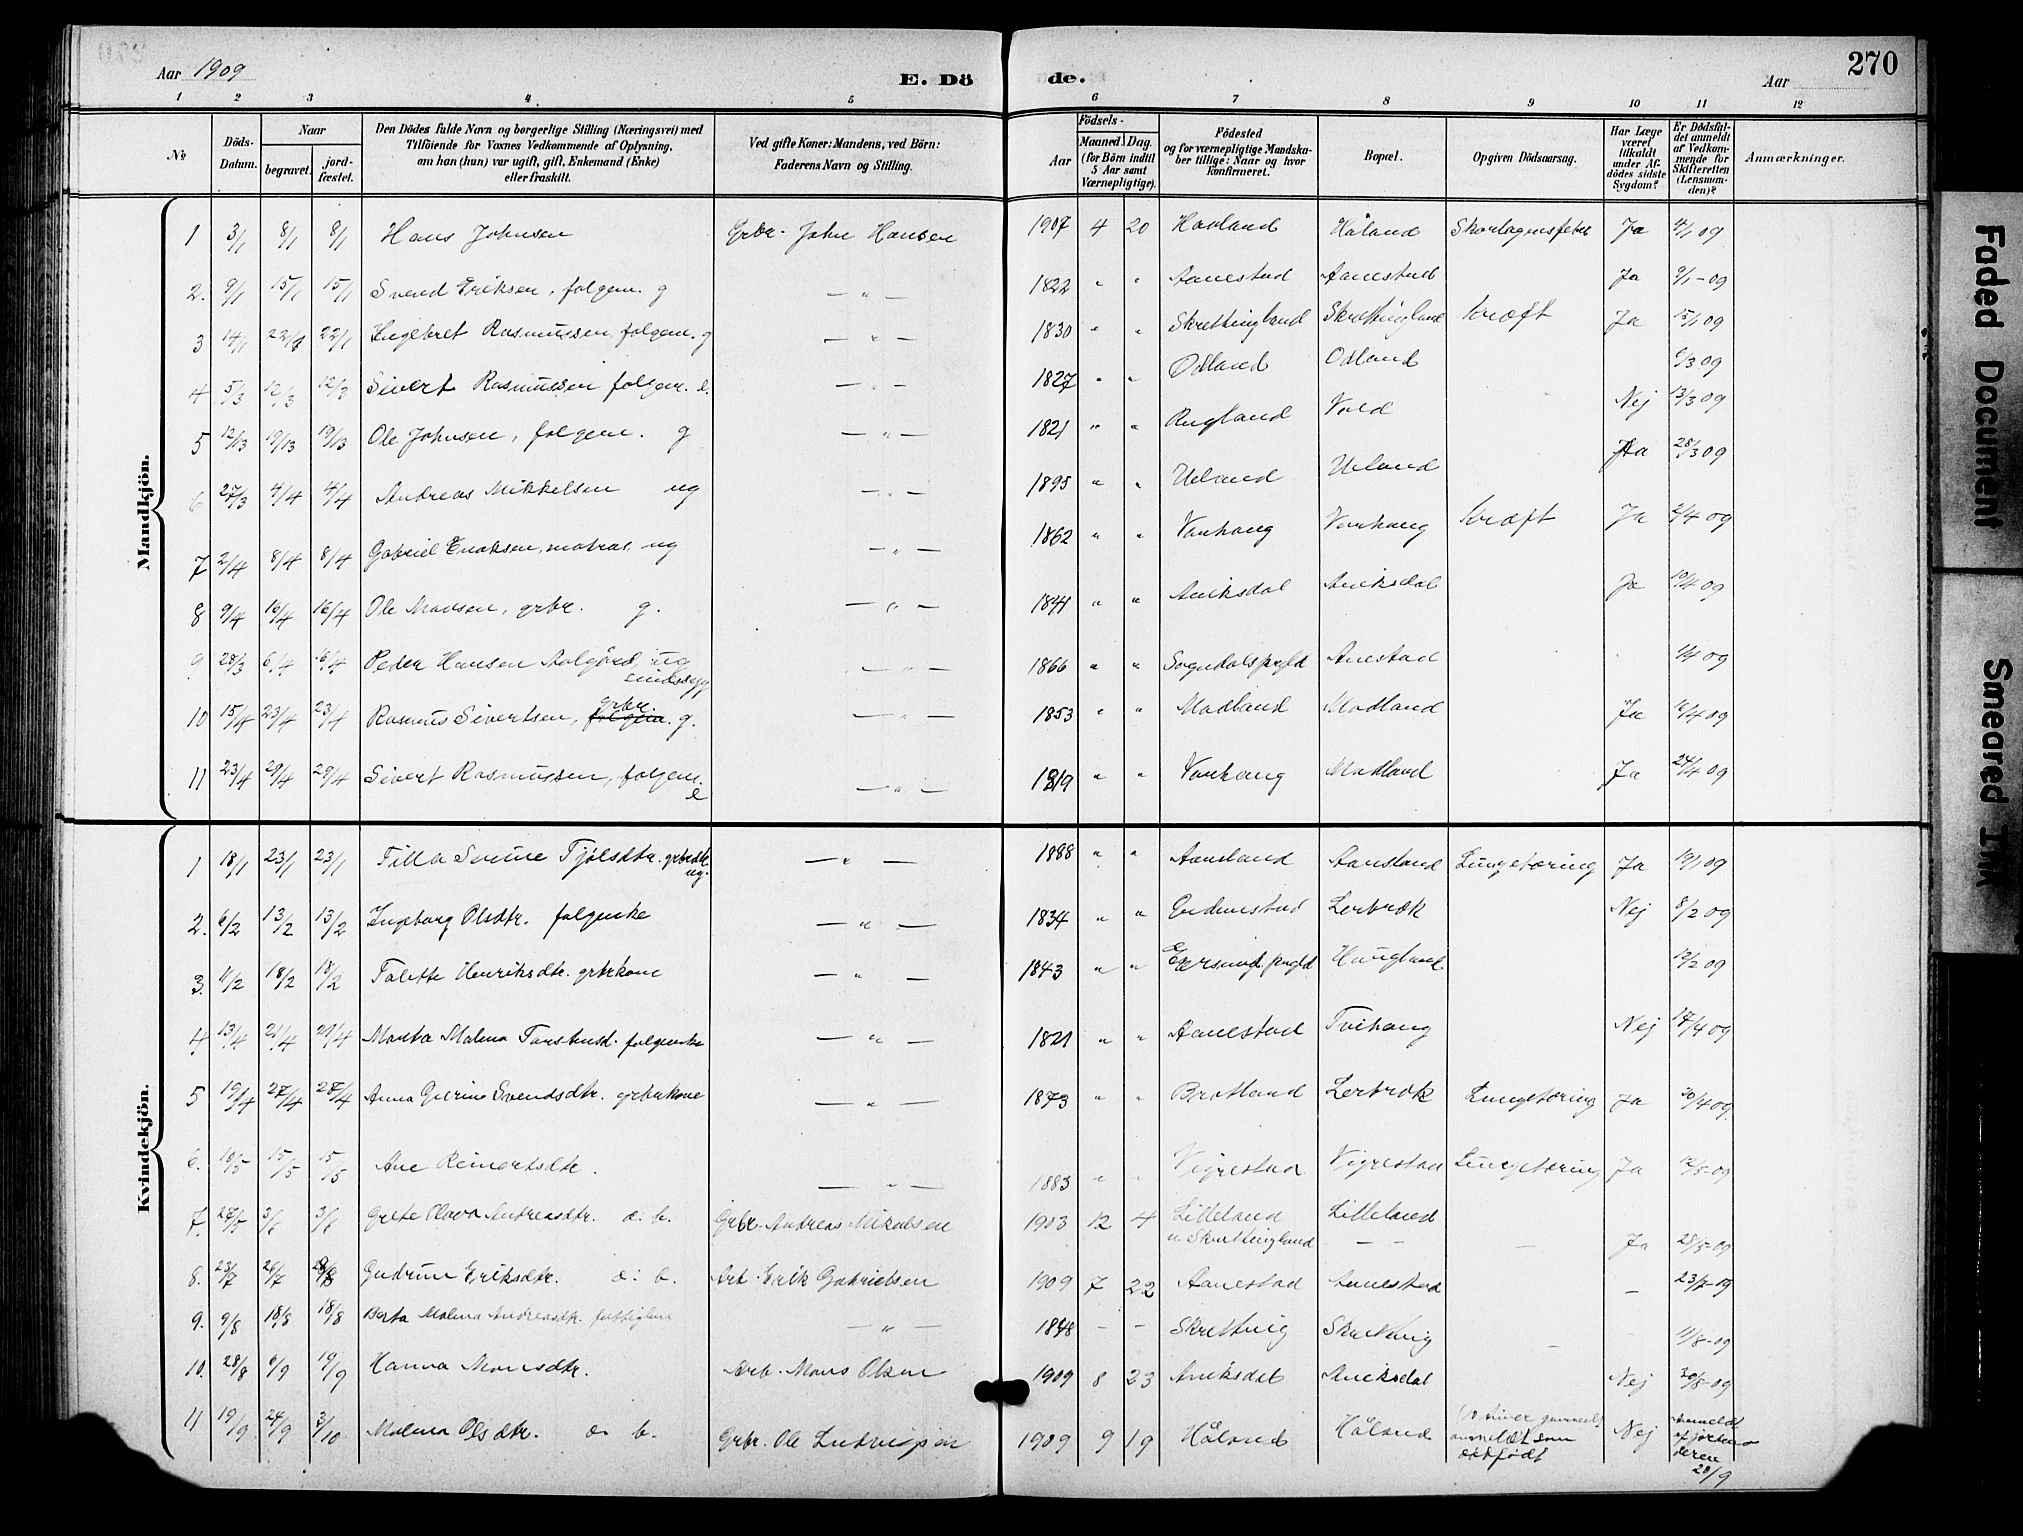 270
Aar 1909 E. Dö de. Aar
1 2 3 4 5 6 7 8 9 10 11 12
№
Döds-Datum.
Naar
begravet.
jord-fæstet.
Den Dödes fulde Navn og borgerlige Stilling (Næringsvei) med
Tilföiende for Voxnes Vedkommende af Oplysning,
om han (hun) var ugift, gift, Enkemand (Enke)
eller fraskilt.
Ved gifte Koner: Mandens, ved Börn:
Faderens Navn og Stilling.
Födsels-
Aar
Maaned. Dag.
(for Börn indtil
5 Aar samt
Værnepligtige).
Födested
og for værnepligtige Mandska-
ber tillige: Naar og hvor
konfirmeret.
Bopæl.
Opgiven Dödsaarsag.
Har Læge
været
tilkaldt
under Af-
dödes sidste
Sygdom?
Er Dödsfal-
det anmeldt
af Vedkom-
mende for
Skifteretten
(Lensman-
den)?
Anmærkninger.
Mandkjön.
1 3/1 8/1 8/1 Hans Johnsen Grbr. John Hansen 1907 4 20 Haaland Håland Skarlagensfeber Ja 4/1 09
2. 9/1 15/1 15/1 Svend Eriksen, folgem. g — " — 1822 " " Aanestad Aanestad Ja 9/1-09
3 14/1 22/1 22/1 Ingebret Rasmussen, folgem. g — " — 1830 " " Skrettingland Skrettingland Kræft Ja 15/1 09
4 5/3 12/3 12/3 Sivert Rasmussen folgem. e. — " — 1827 " " Odland Odland 6/3 09
5 12/3 19/3 19/3 Ole Johnsen, folgem. g — " — 1821 " " Rugland Vold Nej 13/3 09
6 27/3 4/4 4/4 Andreas Mikkelsen ug — " — 1895 " " Ueland Ueland Ja 28/3 09
7 2/4 8/4 8/4 Gabriel Enoksen, matros. ug — " — 1862 " " Varhaug Varhaug Kræft Ja 2/4 09
8 9/4 16/4 16/4 Ole Mausen, grbr. g. — " — 1841 " " Aniksdal Aniksdal Ja 10/4 09
9 28/3 6/4 6/4 Peder Hansen Aalgård, ug — " — 1866 " " Sogndals prgld Anestad 1/4 09
sindssyg
10 15/4 23/4 23/4 Rasmus Sivertsen, folgem. grbr. g. — " — 1853 " " Madland Madland Ja 16/4 09
11 23/4 29/4 29/4 Sivert Rasmussen, folgem. e — " — 1819 " " Varhaug Madland Ja 24/4 09
Kvindekjön.
1 18/1 23/1 23/1 Tilla Serine Tjølsdtr. grbrdtr. ug. — " — 1888 " " Aansland Aansland Lungetæring Ja 19/1 09
2. 6/2 13/2 13/2 Ingeborg Olsdtr. folgenke — " — 1834 " " Gudmestad Lerbræk Nej 8/2 09
3. 11/2 18/2 18/2 Talette Henriksdtr. grbrkone — " — 1843 " " Egersund prgld Haugland 12/2 09
4 13/4 21/4 21/4 Marta Malena Torstensd. folgenke — " — 1821 " " Aanestad Tvihaug Nej 17/4 09
5 19/4 27/4 27/4 Anna Gurine Svendsdtr. grbrkone — " — 1873 " " Bratland Lerbræk Lungetæring Ja 20/4 09
6. 10/5 15/5 15/5 Ane Reinertsdtr. — " — 1883 " " Vigrestad Vigrestad Lungetæring Ja 12/5-09
7. 27/5 3/6 3/6 Grete Olava Andreasdtr. d. b. Grbr. Andreas Mikalsen 1903 12 4 Lilleland Lilleland
u. Skrettingland — — — Ja 28/5-09
8. 23/7 26/7 Gudrun Eriksdtr. d. b. Arb. Erik Gabrielsen 1909 7 22 Aanestad Aanestad — 23/7-09
9. 9/8 18/8 18/8 Berta Malena Andreasdtr. fattiglem — " — 1848 — — Skretting Skretting — 11/8-09
10. 28/8 6/9 19/9 Hanna Monsdtr. Arb. Mons Olsen 1909 8 23 Aniksdal Aniksdal Nej 30/8-09
11 19/9 24/9 3/10 Malena Olsdtr. d. b. Grbr. Ole Ludvigsen 1909 9 19 Håland Håland anmeldt som
dødfødt Nej Anmeldt
af jordemo
deren
20/9
Faded Document
Smeared Ink